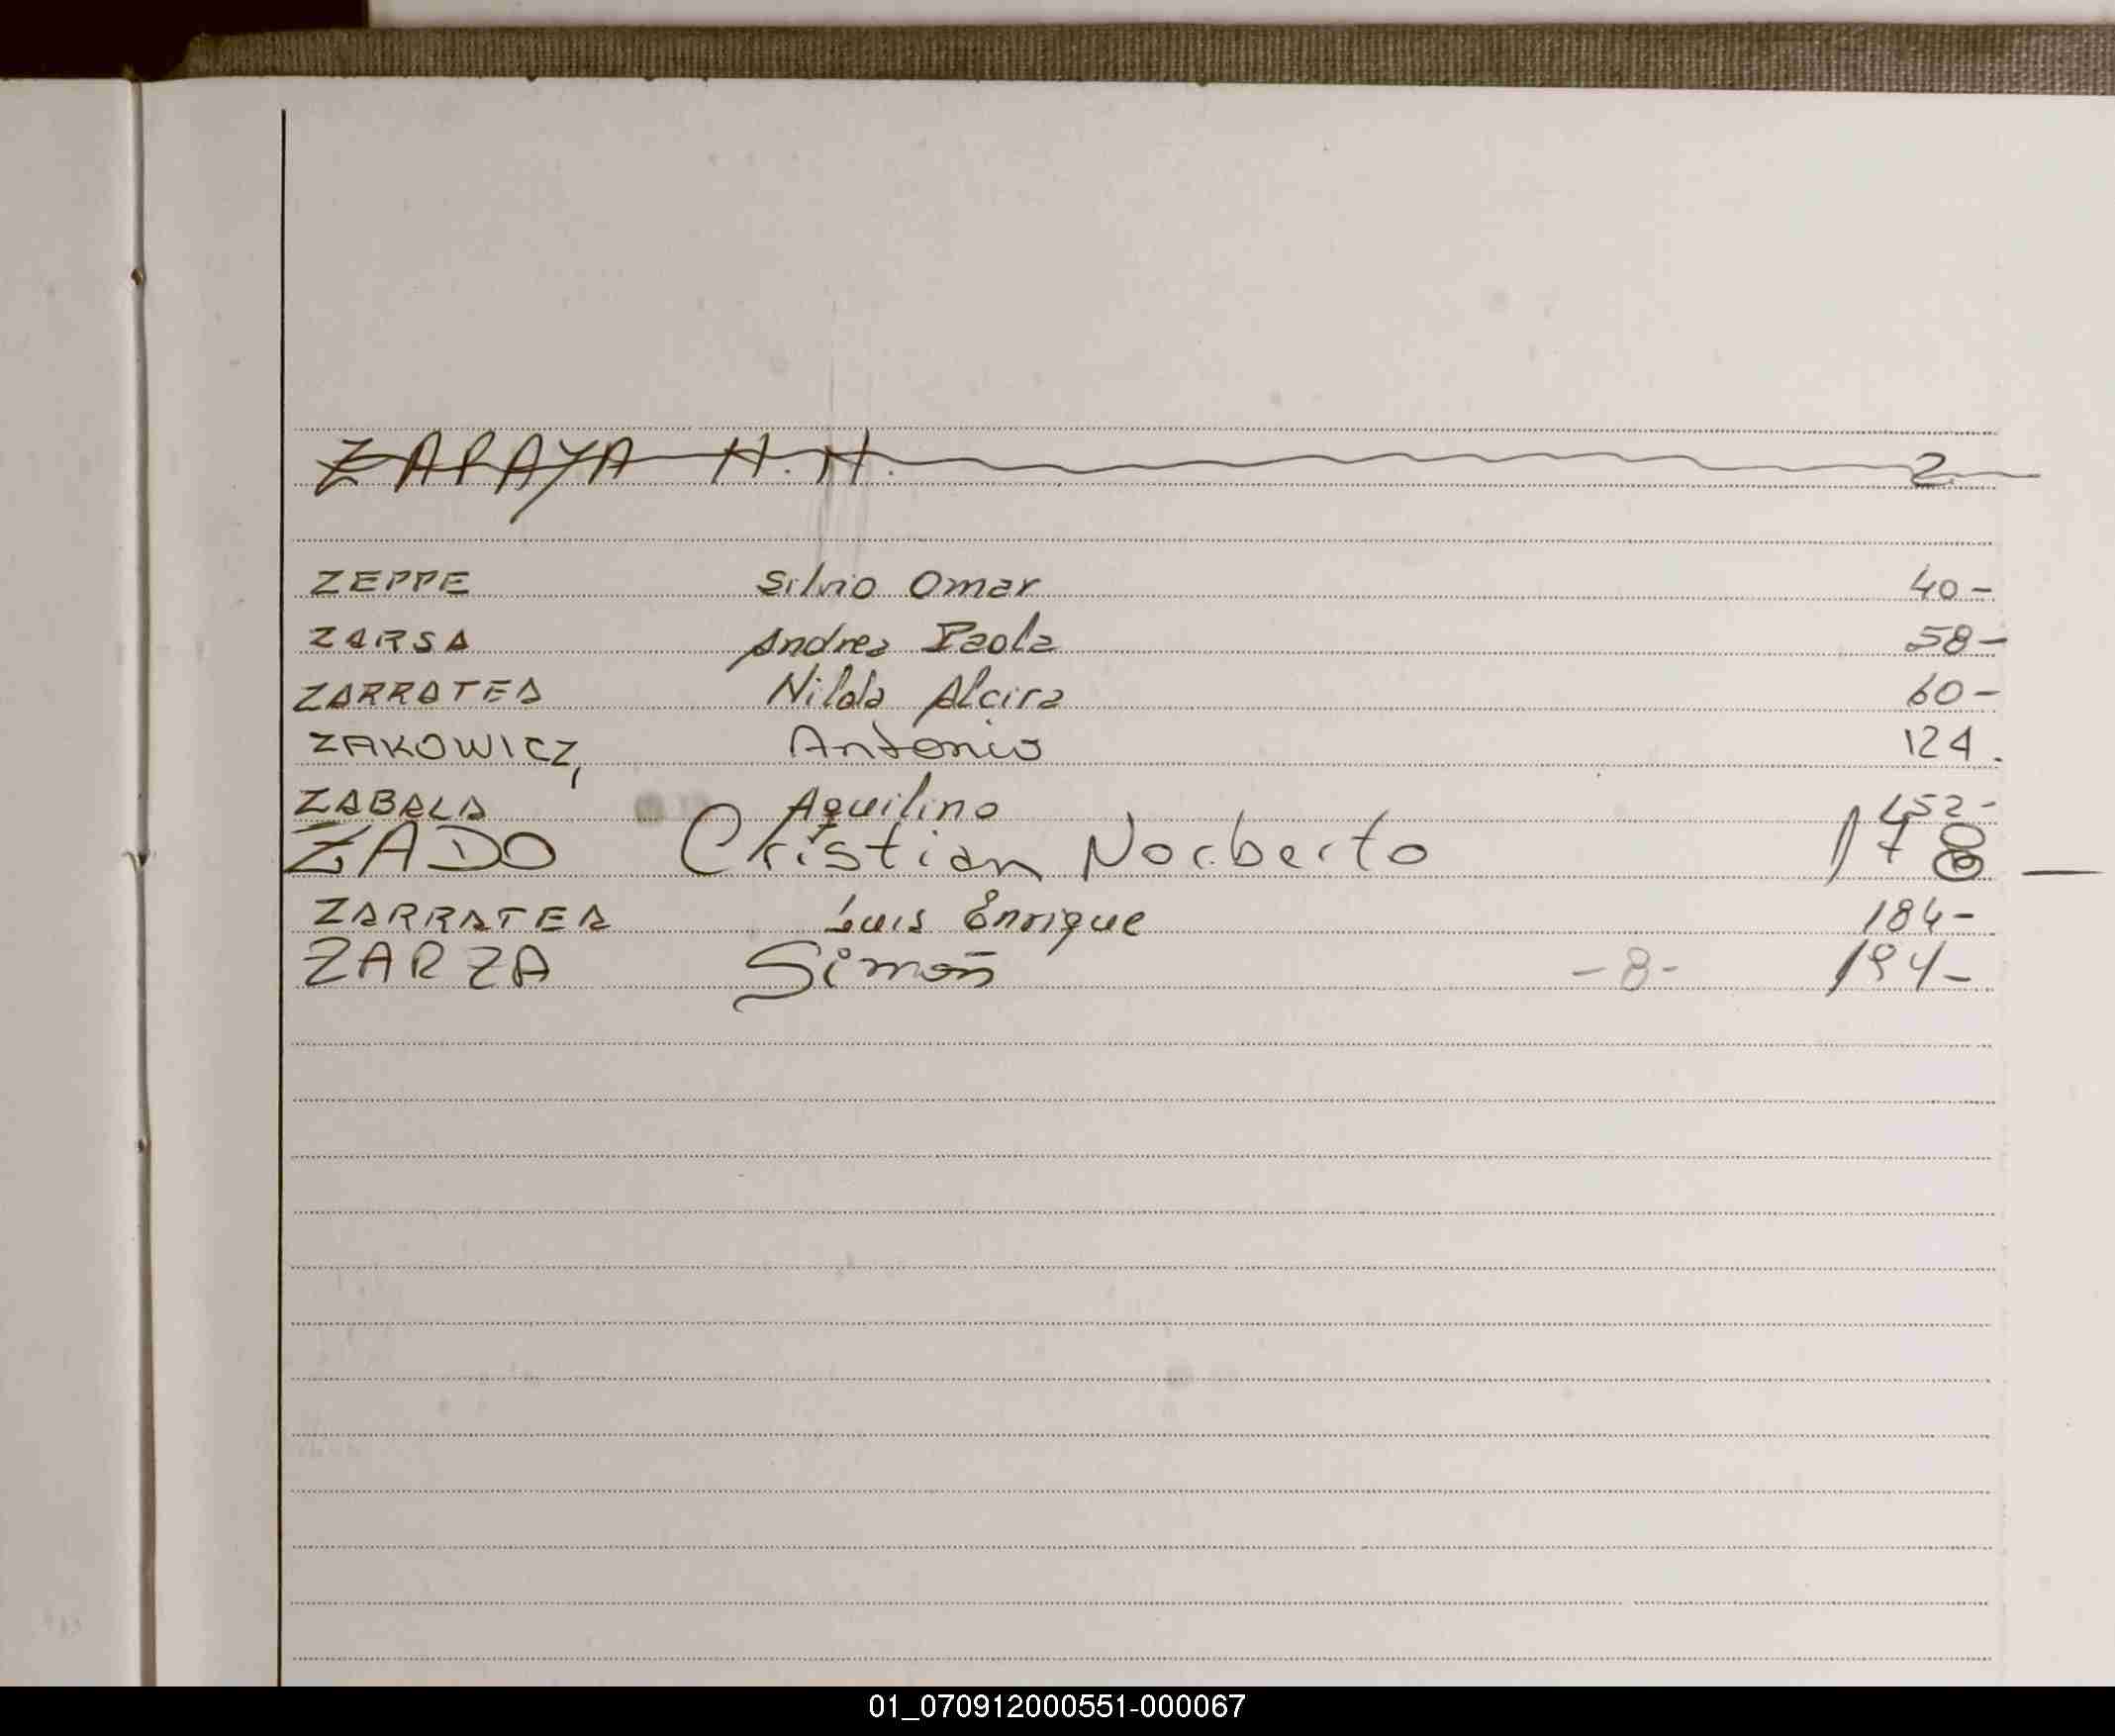 ZAPAYA H.H. 2
ZEPPE Silvio Omar 40-
ZARSA Andrea Paola 58-
ZARRATEA Nilda Alcira 60-
ZAKOWICZ, Antonio 124.
ZABALA Aquilino 152-
ZADO Cristian Norberto 178 —
ZARRATEA Luis Enrique 184-
ZARZA Simón -8- 194-
01_070912000551-000067